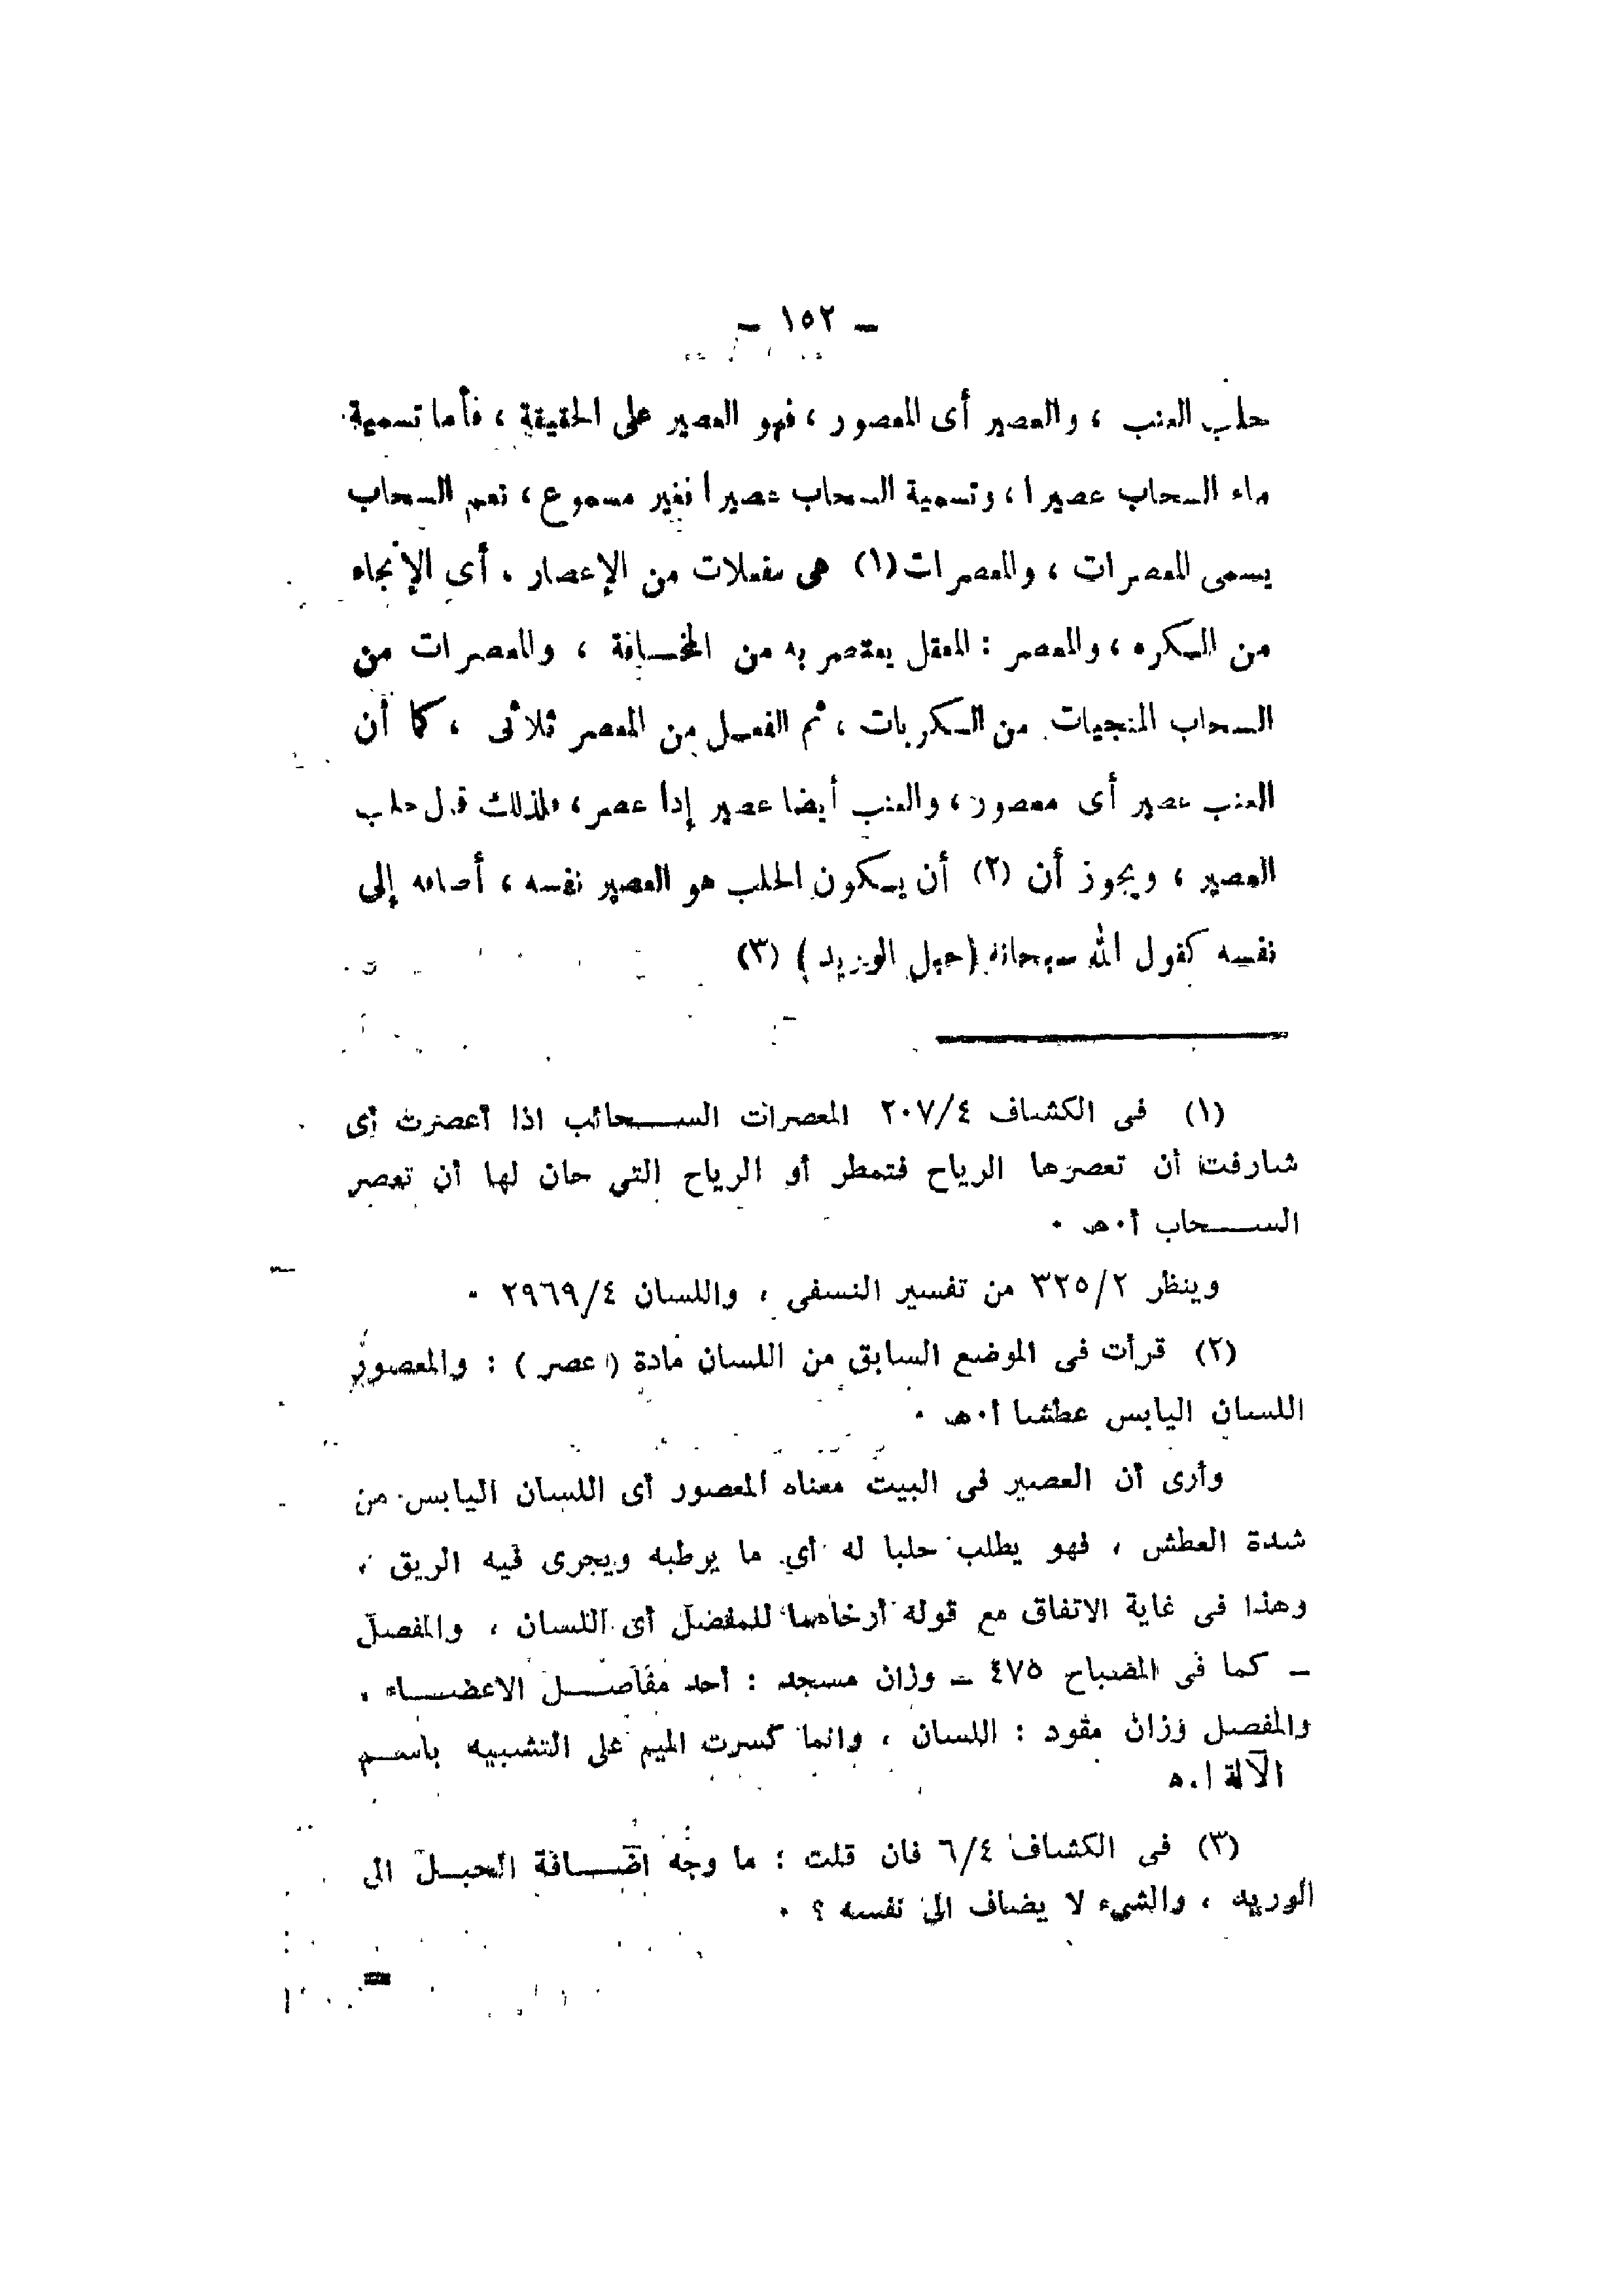 ـ ١٥٢ ـ
حلب العنب ، والعصير أى المعصور ، فهو العصير على الحقيقة ، فأما تسمية
ماء السحاب عصيرا ، وتسمية السحاب عصيرا نغير مسموع ، نعم السحاب
يسمى المعصرات ، والمعصرات (١) هى مفعلات من الإعصار . أى الإنجاء
من المكره ، والمعصر : المعقل يعتصر به من المخافة ، والمعصرات من
السحاب المنجيات من الكربات ، ثم الفعل من المعصر ثلاثى ، كما أن
العنب عصير أى معصور ، والعنب أيضا عصير إذا عصر ، فلذلك قال حلب
العصير ، ويجوز أن (٢) أن يكون الحلب هو العصير نفسه ، أضافه إلى
نفسه كقول الله سبحانه (حبل الوريد) (٣)
(١) فى الكشاف ٢٠٧/٤ المعصرات السحائب اذا أعصرت أى
شارفت أن تعصرها الرياح فتمطر أو الرياح التى حان لها أن تعصر
السحاب أ٠هـ ٠
وينظر ٣٢٥/٢ من تفسير النسفى ، واللسان ٢٩٦٩/٤ ٠
(٢) قرأت فى الموضع السابق من اللسان مادة (عصر) : والمعصور
اللسان اليابس عطشا أ٠هـ ٠
وأرى أن العصير فى البيت معناه المعصور أى اللسان اليابس من
شدة العطش ، فهو يطلب حلبا له أى ما يرطبه ويجرى فيه الريق ،
وهذا فى غاية الاتفاق مع قوله أرخاهما للمفصل أى اللسان ، والمفصل
ـ كما فى المصباح ٤٧٥ ـ وزان مسجد : أحد مفاصل الاعضاء .
والمفصل وزان مقود : اللسان ، وانما كسرت الميم على التشبيه باسم
الآلة ا.ه
(٣) فى الكشاف ٦/٤ فان قلت : ما وجه اضافة الحبل الى
الوريد ، والشىء لا يضاف الى نفسه ؟ ٠
=